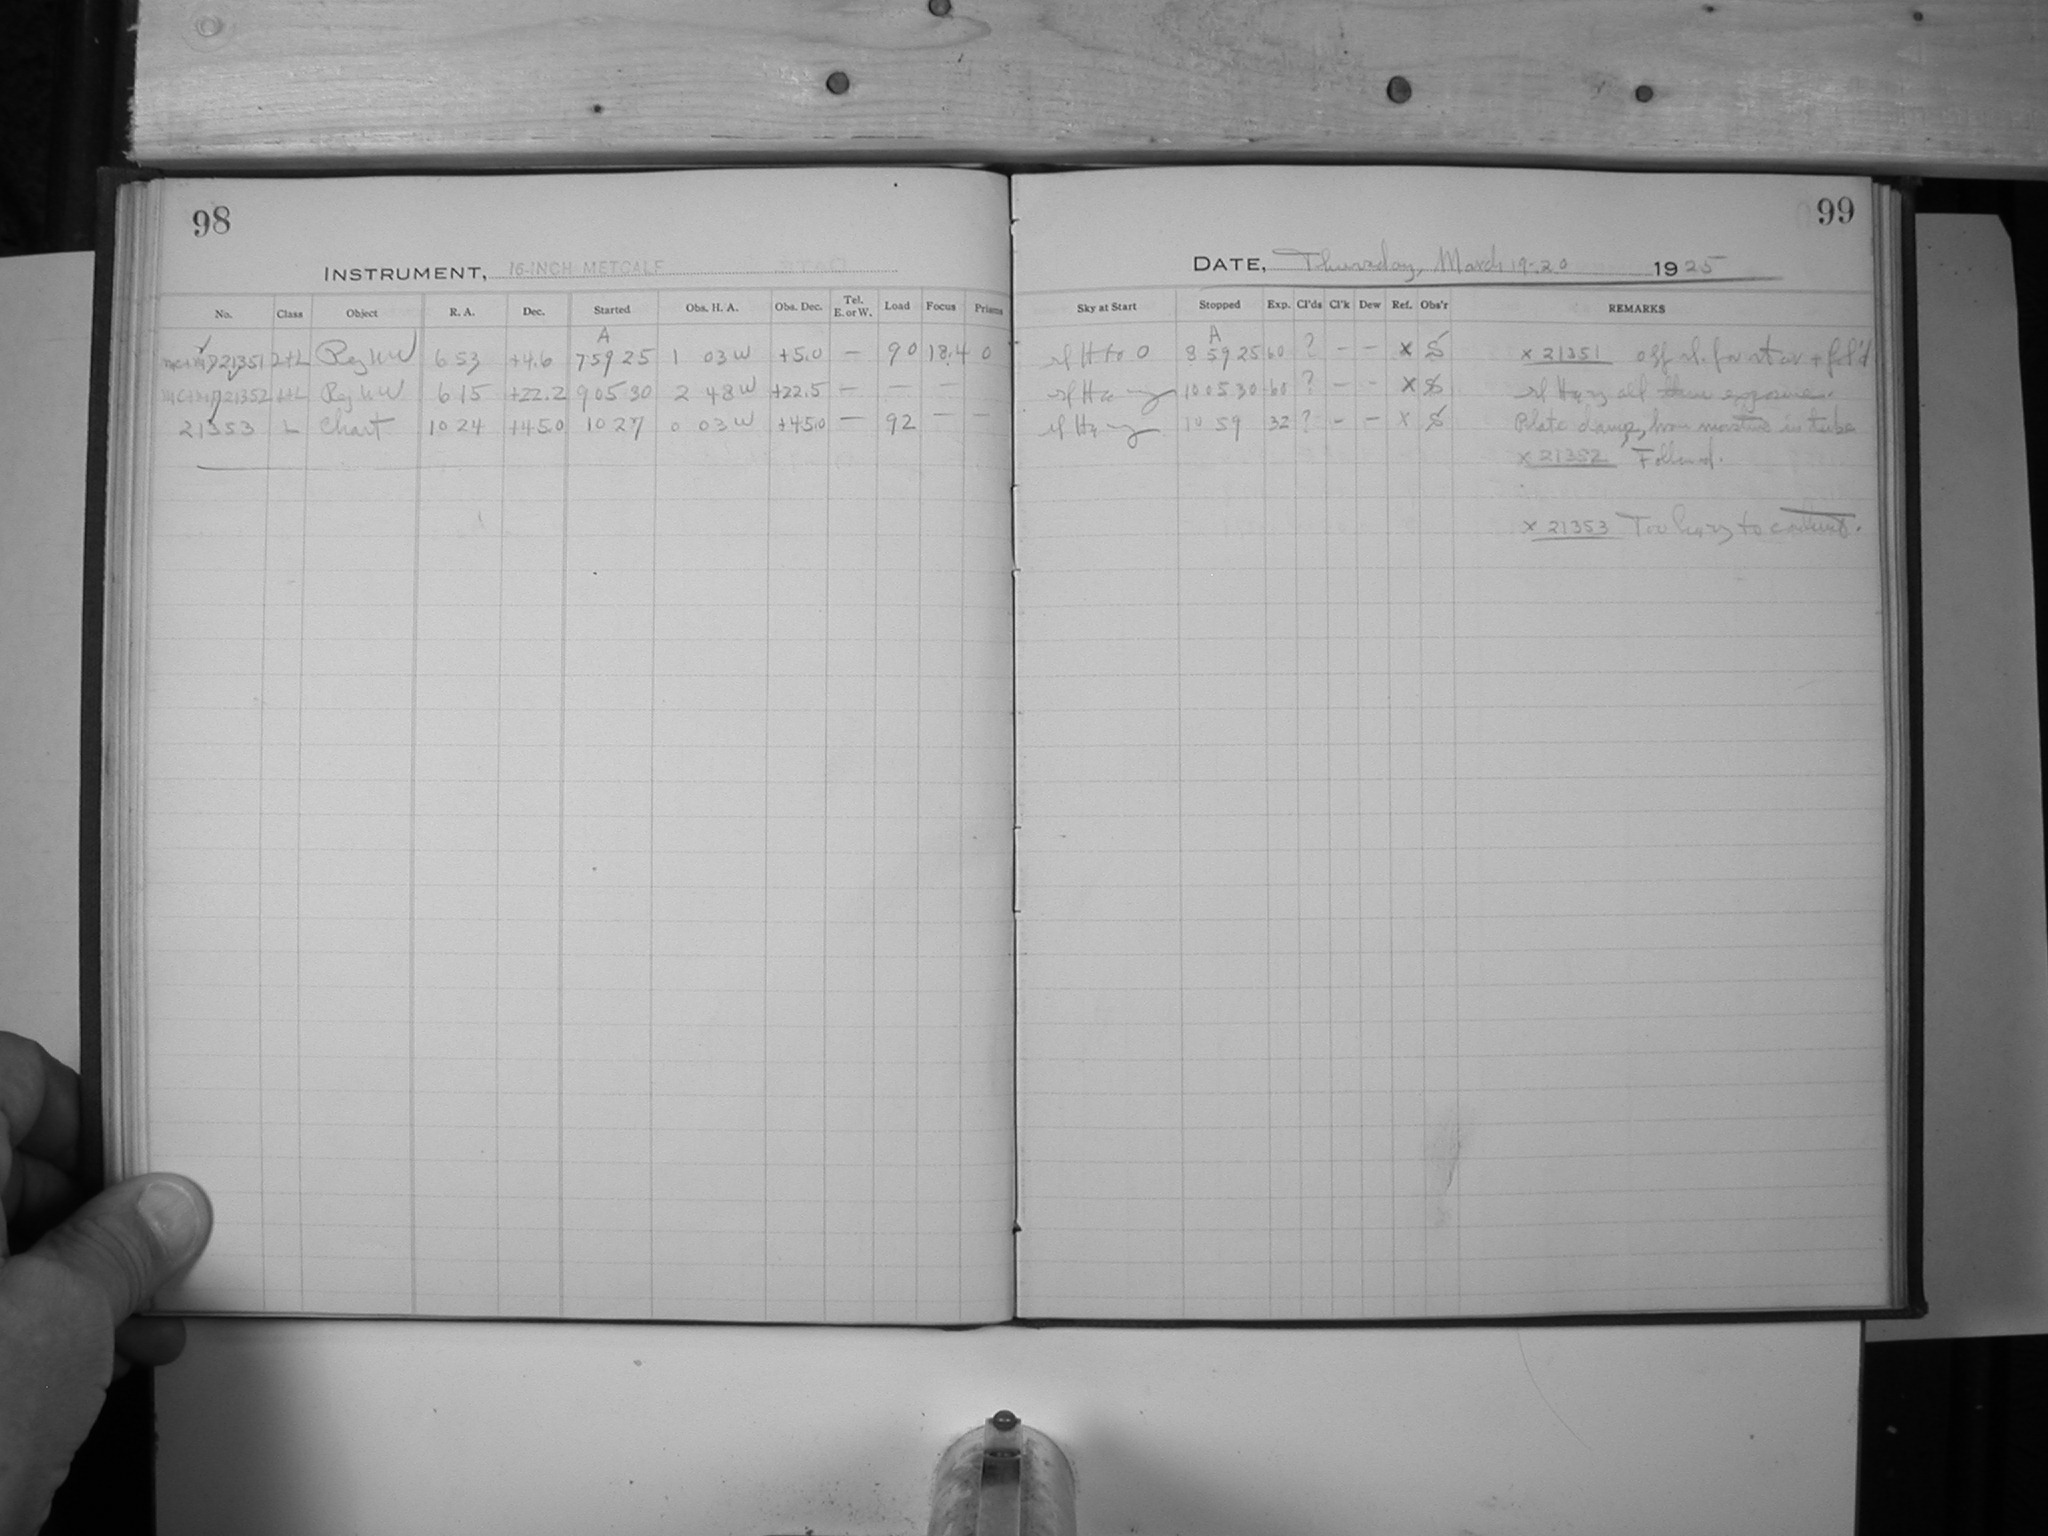 98
INSTRUMENT, 16-INCH METCALF
No. Class Object R. A. Dec. Started Obs. H. A. Obs. Dec. Tel. E. or W. Load Focus Prisms
A
21351 L+L 6 53 +4.6 7 59 25 1 03 W +5.0 — 90 18.4 0
21352 L+L 6 15 +22.2 9 05 30 2 48 W +22.5 — — —
21353 L Chart 10 24 +45.0 10 27 0 03 W +45.0 — 92 — —
99
DATE, Thursday, March 19-20 1925
Sky at Start Stopped Exp. Cl'ds Cl'k Dew Ref. Obs'r REMARKS
A
sl H to 0 8 59 25 60 ? — — x S x 21351 off sl. for star + fol'd
sl Hazy 10 05 30 60 ? — — x S sl Hazy all exposure.
sl Hazy 10 59 32 ? — — x S Plate damp, from moisture in tube
x 21352 Followed.
x 21353 Too hazy to continue.